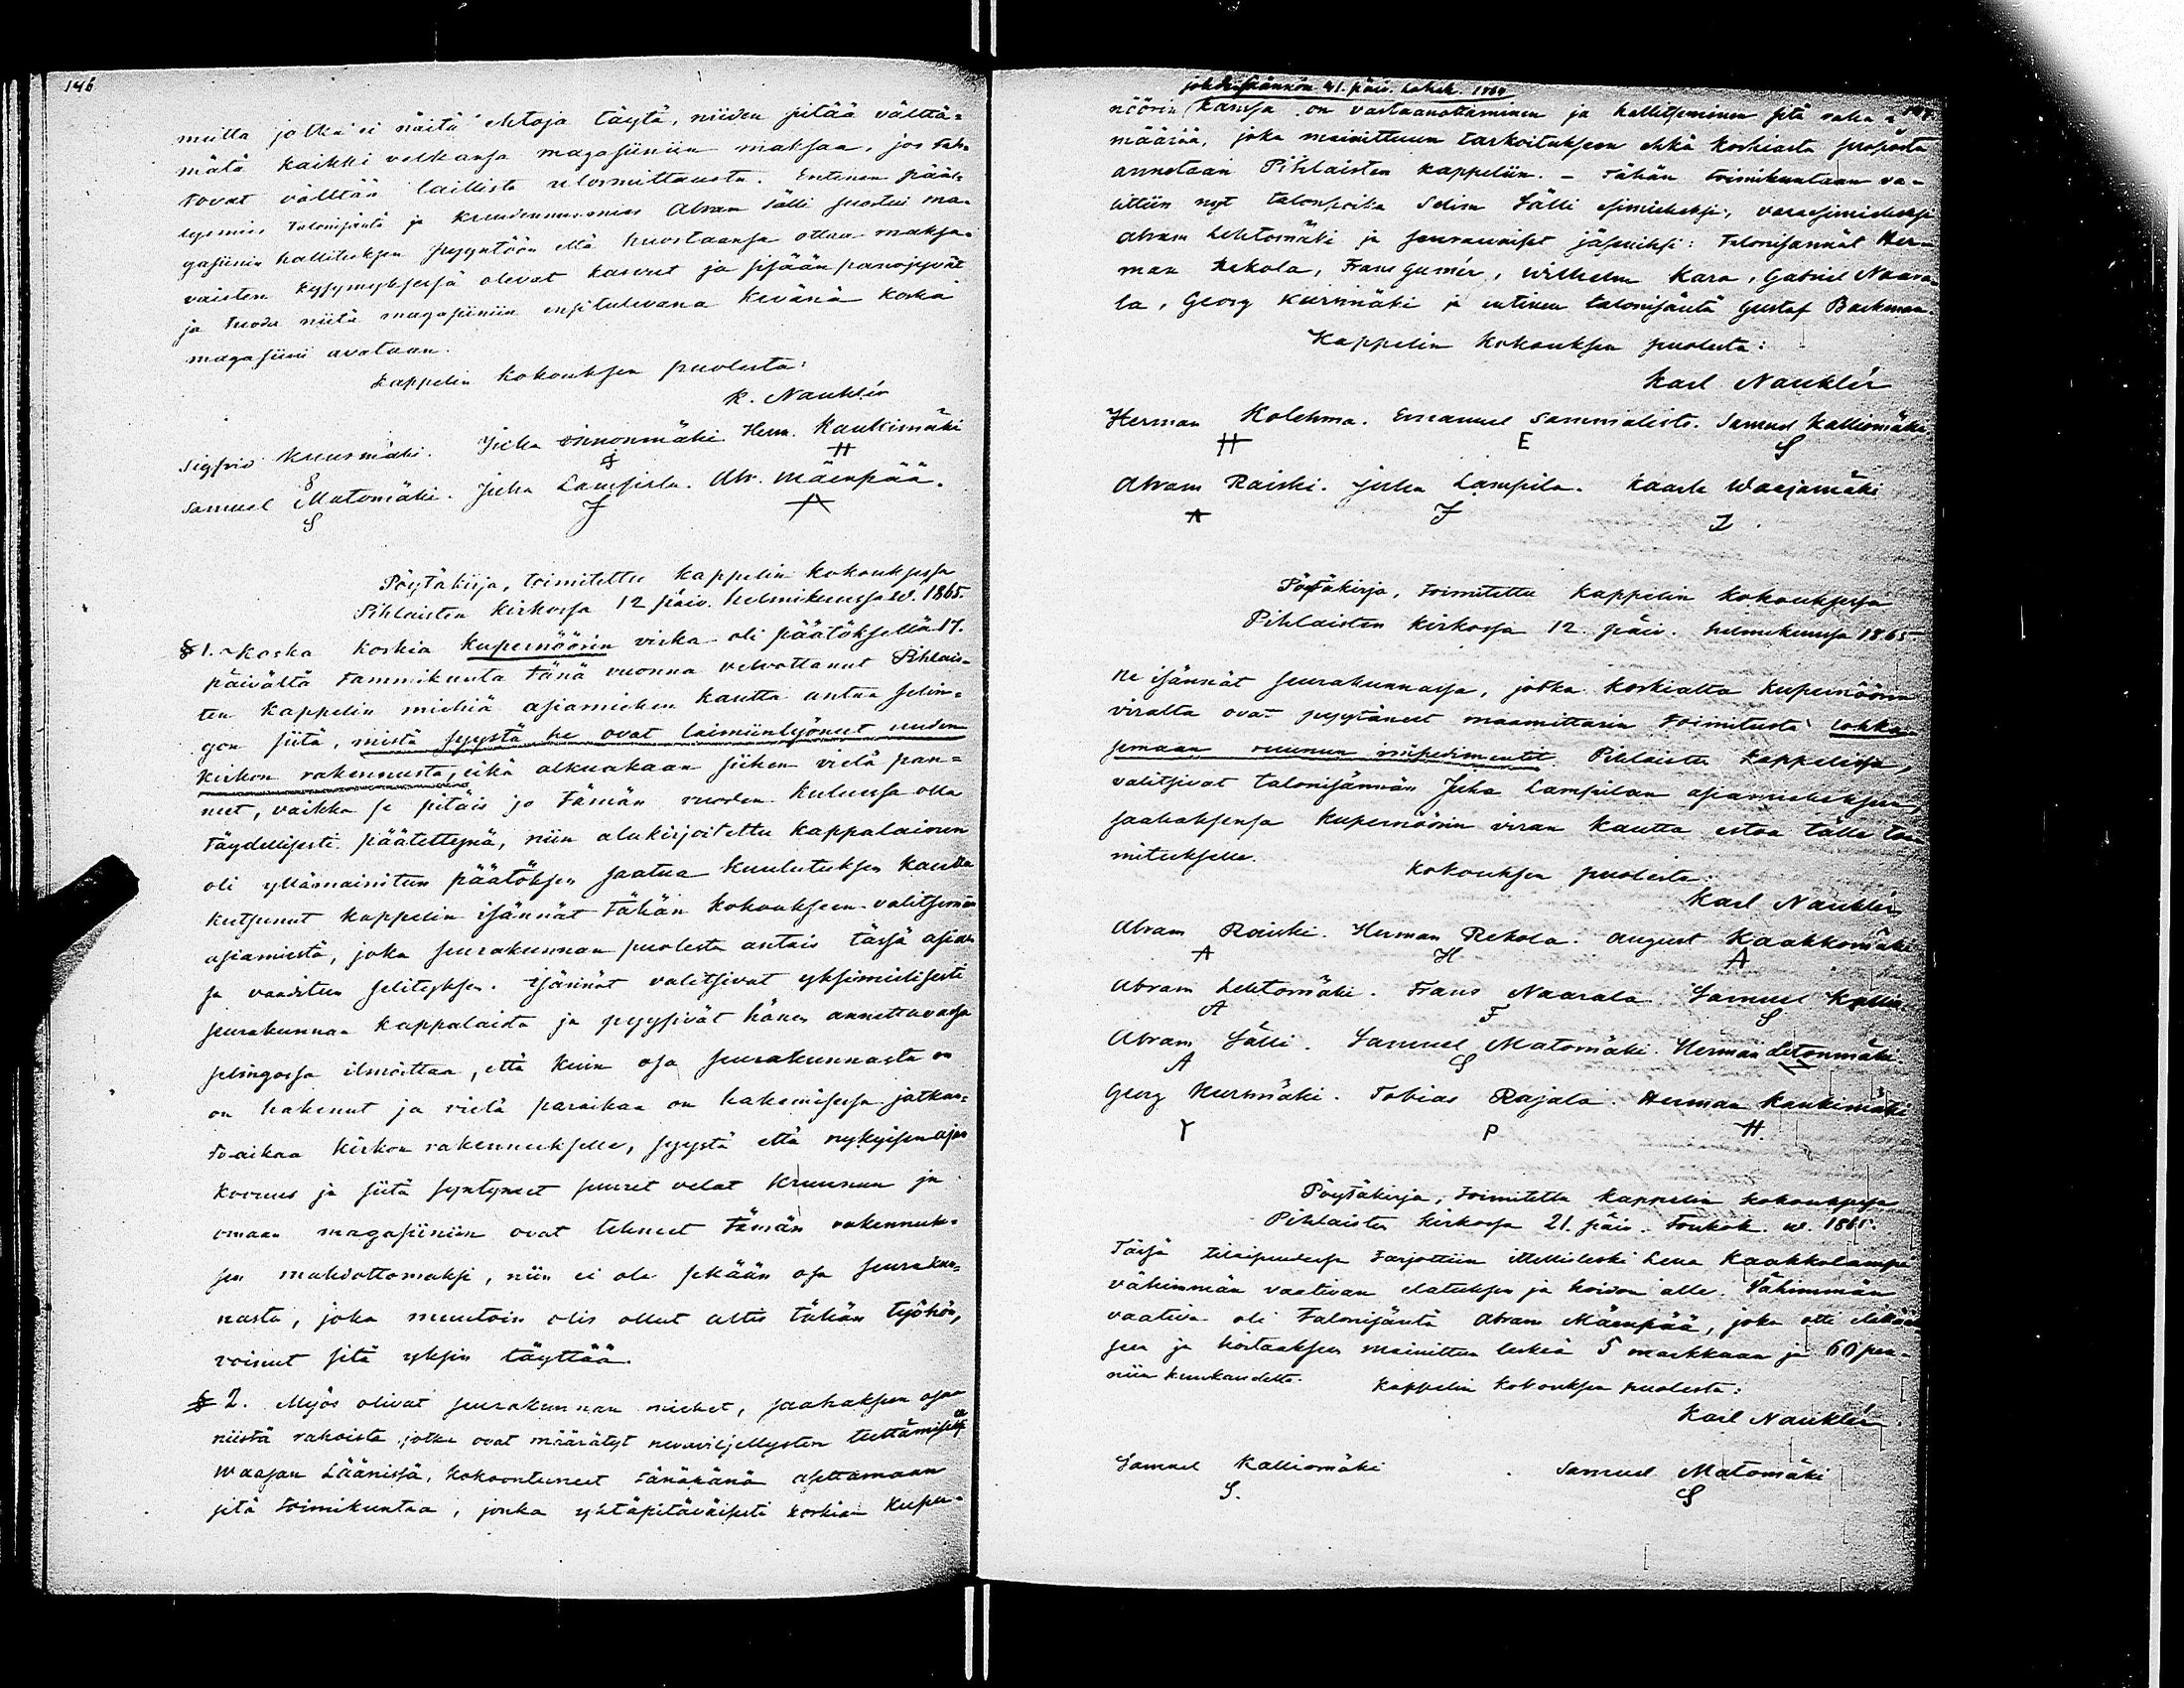 146
mutta jotka ei näitä ehtoja täytä, niiden pitää välttä-
mätä kaikki velkansa magasiiniin maksaa, jos tah-
tovat välttää laillista ulosmittausta. Entinen pääl-
lysmies talonisäntä ja kruudennusmies Abram Sälli suostui ma-
gasiinin hallituksen pyyntöön että huostaansa ottaa maksa-
vaisten kysymyksessä olevat kasvut ja sisään panojyvät
ja tuoda niitä magasiiniin ensitulevana kevänä koska
magasiini avataan.
Kappelin kokouksen puolesta:
K. Nauklér
Sigfrid Kuusmäki. Juha Sinonmäki Herm. Kaukimäki
S J H
Samuel Matomäki. Juha Lampila. Abr. Mäenpää.
S J A
Pöytäkirja, toimitettu kappelin kokouksessa
Pihlaisten kirkossa 12 päiv. helmikuussa w. 1865.
§ 1. Koska koskia kupernöörin virka oli päätöksellä 17.
päivältä tammikuuta tänä vuonna velvottanut Pihlais-
ten kappelin miehiä asiamiehen kautta antaa selin-
gon siitä, mistä syystä he ovat laiminlyöneet uuden
kirkon rakennusta, eikä alkuakaan siihen vielä pan-
neet, vaikka se pitäis jo tämän vuoden kuluessa olla
täydellisesti päätettynä, niin alakirjoitettu kappalainen
oli yllämainitun päätöksen saatua kuulutuksen kautta
kutsunut kappelin isännät tähän kokoukseen valitsemaan
asiamiestä, joka seurakunnan puolesta antais tässä asias-
sa vaaditun selityksen. Isännät valitsivat yksimielisesti
seurakunnan kappalaista ja pyysivät hänen annettavassa
selingossa ilmoittaa, että kuin osa seurakunnasta on
on hakenut ja vielä paraikaa on hakemisessa jatkan-
to-aikaa kirkon rakennukselle, syystä että nykyisen ajan
kovuus ja siitä syntyneet suuret velat kruunun ja
omaan magasiiniin ovat tehneet tämän rakennuk-
sen mahdottomaksi, niin ei ole sekään osa seurakun-
nasta, joka muutoin olis ollut altis tähän työhön,
voinut sitä yksin täyttää.
§ 2. Myös olivat seurakunnan miehet, saahaksen osaa
niistä rahoista jotka ovat määrätyt nevaviljellysten teettämiseksi
Waasan Läänissä, kokoontuneet tänäpänä asettamaan
sitä toimikuntaa, jonka yhtäpitäväisesti koskian kuper-
johtosäännön 41. päiv. lokak. 1864
nöörin kanssa on vastaanottaminen ja hallitseminen sitä raha-
määrää, joka mainittuun tarkoitukseen ehkä koskiasta suosiosta
annetaan Pihlaisten kappeliin. - Tähän toimikuntaan va-
littiin nyt talonpoika Selim Sälli esimieheksi, varaesimieheksi
Abram Lehtomäki ja seuraavaiset jäseniksi: Talonisännät Her-
man Rekola, Frans Gumér, Wilhelm Kara, Gabriel Naara-
la, Georg Kurmäki ja entinen talonisäntä Gustaf Backman.
Kappelin kokouksen puolesta:
Karl Nauklér
Herman Kolehma. Emanuel Sammalisto. Samuel Kalliomäki
H E S
Abram Raiski. Juha Lampila. Kaarle Waajamäki
A J
Pöytäkirja, toimitettu kappelin kokouksessa
Pihlaisten kirkossa 12 päiv. helmikuussa 1865
Ne isännät seurakunnassa, jotka koskialta kupernöörin
viralta ovat pyytäneet maamittarin toimitusta lohka-
semaan ruunun impedimentit Pihlaisten kappelissa,
valitsivat talonisännän Juha Lampilan asiamieheksensä,
saahaksensa kupernöörin viran kautta estoa tälle toi-
mitukselle.
Kokouksen puolesta:
Karl Nauklér
Abram Raiski. Herman Rekola. August Kaakkomäki
A H A
Abram Lehtomäki. Frans Naarala. Samuel Kallio
A F S
Abram Sälli. Samuel Matomäki. Herman Letonmäki
A S
Georg Kurmäki. Tobias Rajala. Herman Kaukimäki
Y P H.
Pöytäkirja, toimitettu kappelin kokouksessa
Pihlaisten kirkossa 21. päiv. Toukok. w. 1865.
Tässä tilaisuudessa tarjottiin itellisleski Lena Kaakkolampi
vähimmän vaativan elatuksen ja hoidon alle. Vähimmän
vaativa oli talonisäntä Abram Mäenpää, joka otti elättääk-
sen ja hoitaaksen mainittua leskeä 5 markkaan ja 60 pen-
niin kuukaudelta.
Kappelin kokouksen puolesta:
Karl Nauklér
Samuel Kalliomäki Samuel Matomäki
S. S